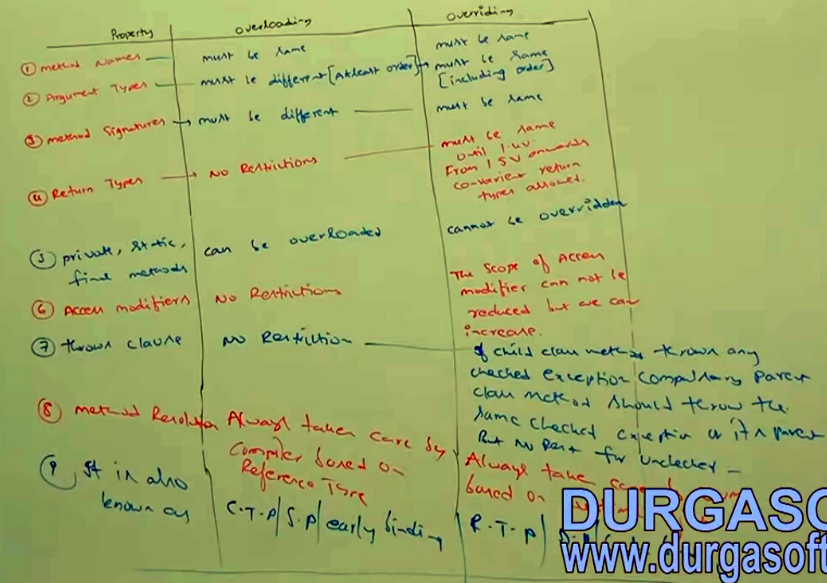 Property overloading overriding
① method Names must be same must be same
② Argument Types must be different [Atleast order] must be same
[including order]
③ method Signatures must be different must be same
④ Return Types No Restrictions must be same
until 1.4v.
From 1.5v onwards
co-varient return
types allowed.
⑤ private, static, can be overloaded cannot be overridden
final methods
⑥ Access modifiers No Restrictions The scope of Access
modifier can not be
reduced but we can
increase.
⑦ throws clause No Restriction If child class method throws any
checked exception compulsory parent
class method should throw the
same checked exception or its parent
But no Rest for unchecked
⑧ method Resolution Always takes care by Always take
Compiler based on based on
Reference Type
⑨ It is also
known as C.T.P/S.P/early binding R.T.P/
DURGASO
www.durgasoft